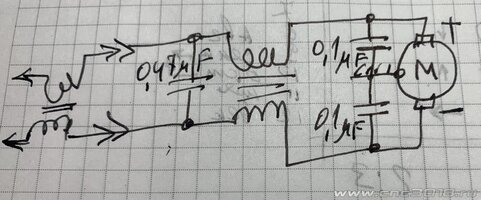 0,47μF
0,1μF
0,1μF
M
+
−
www.cnc3018.ru